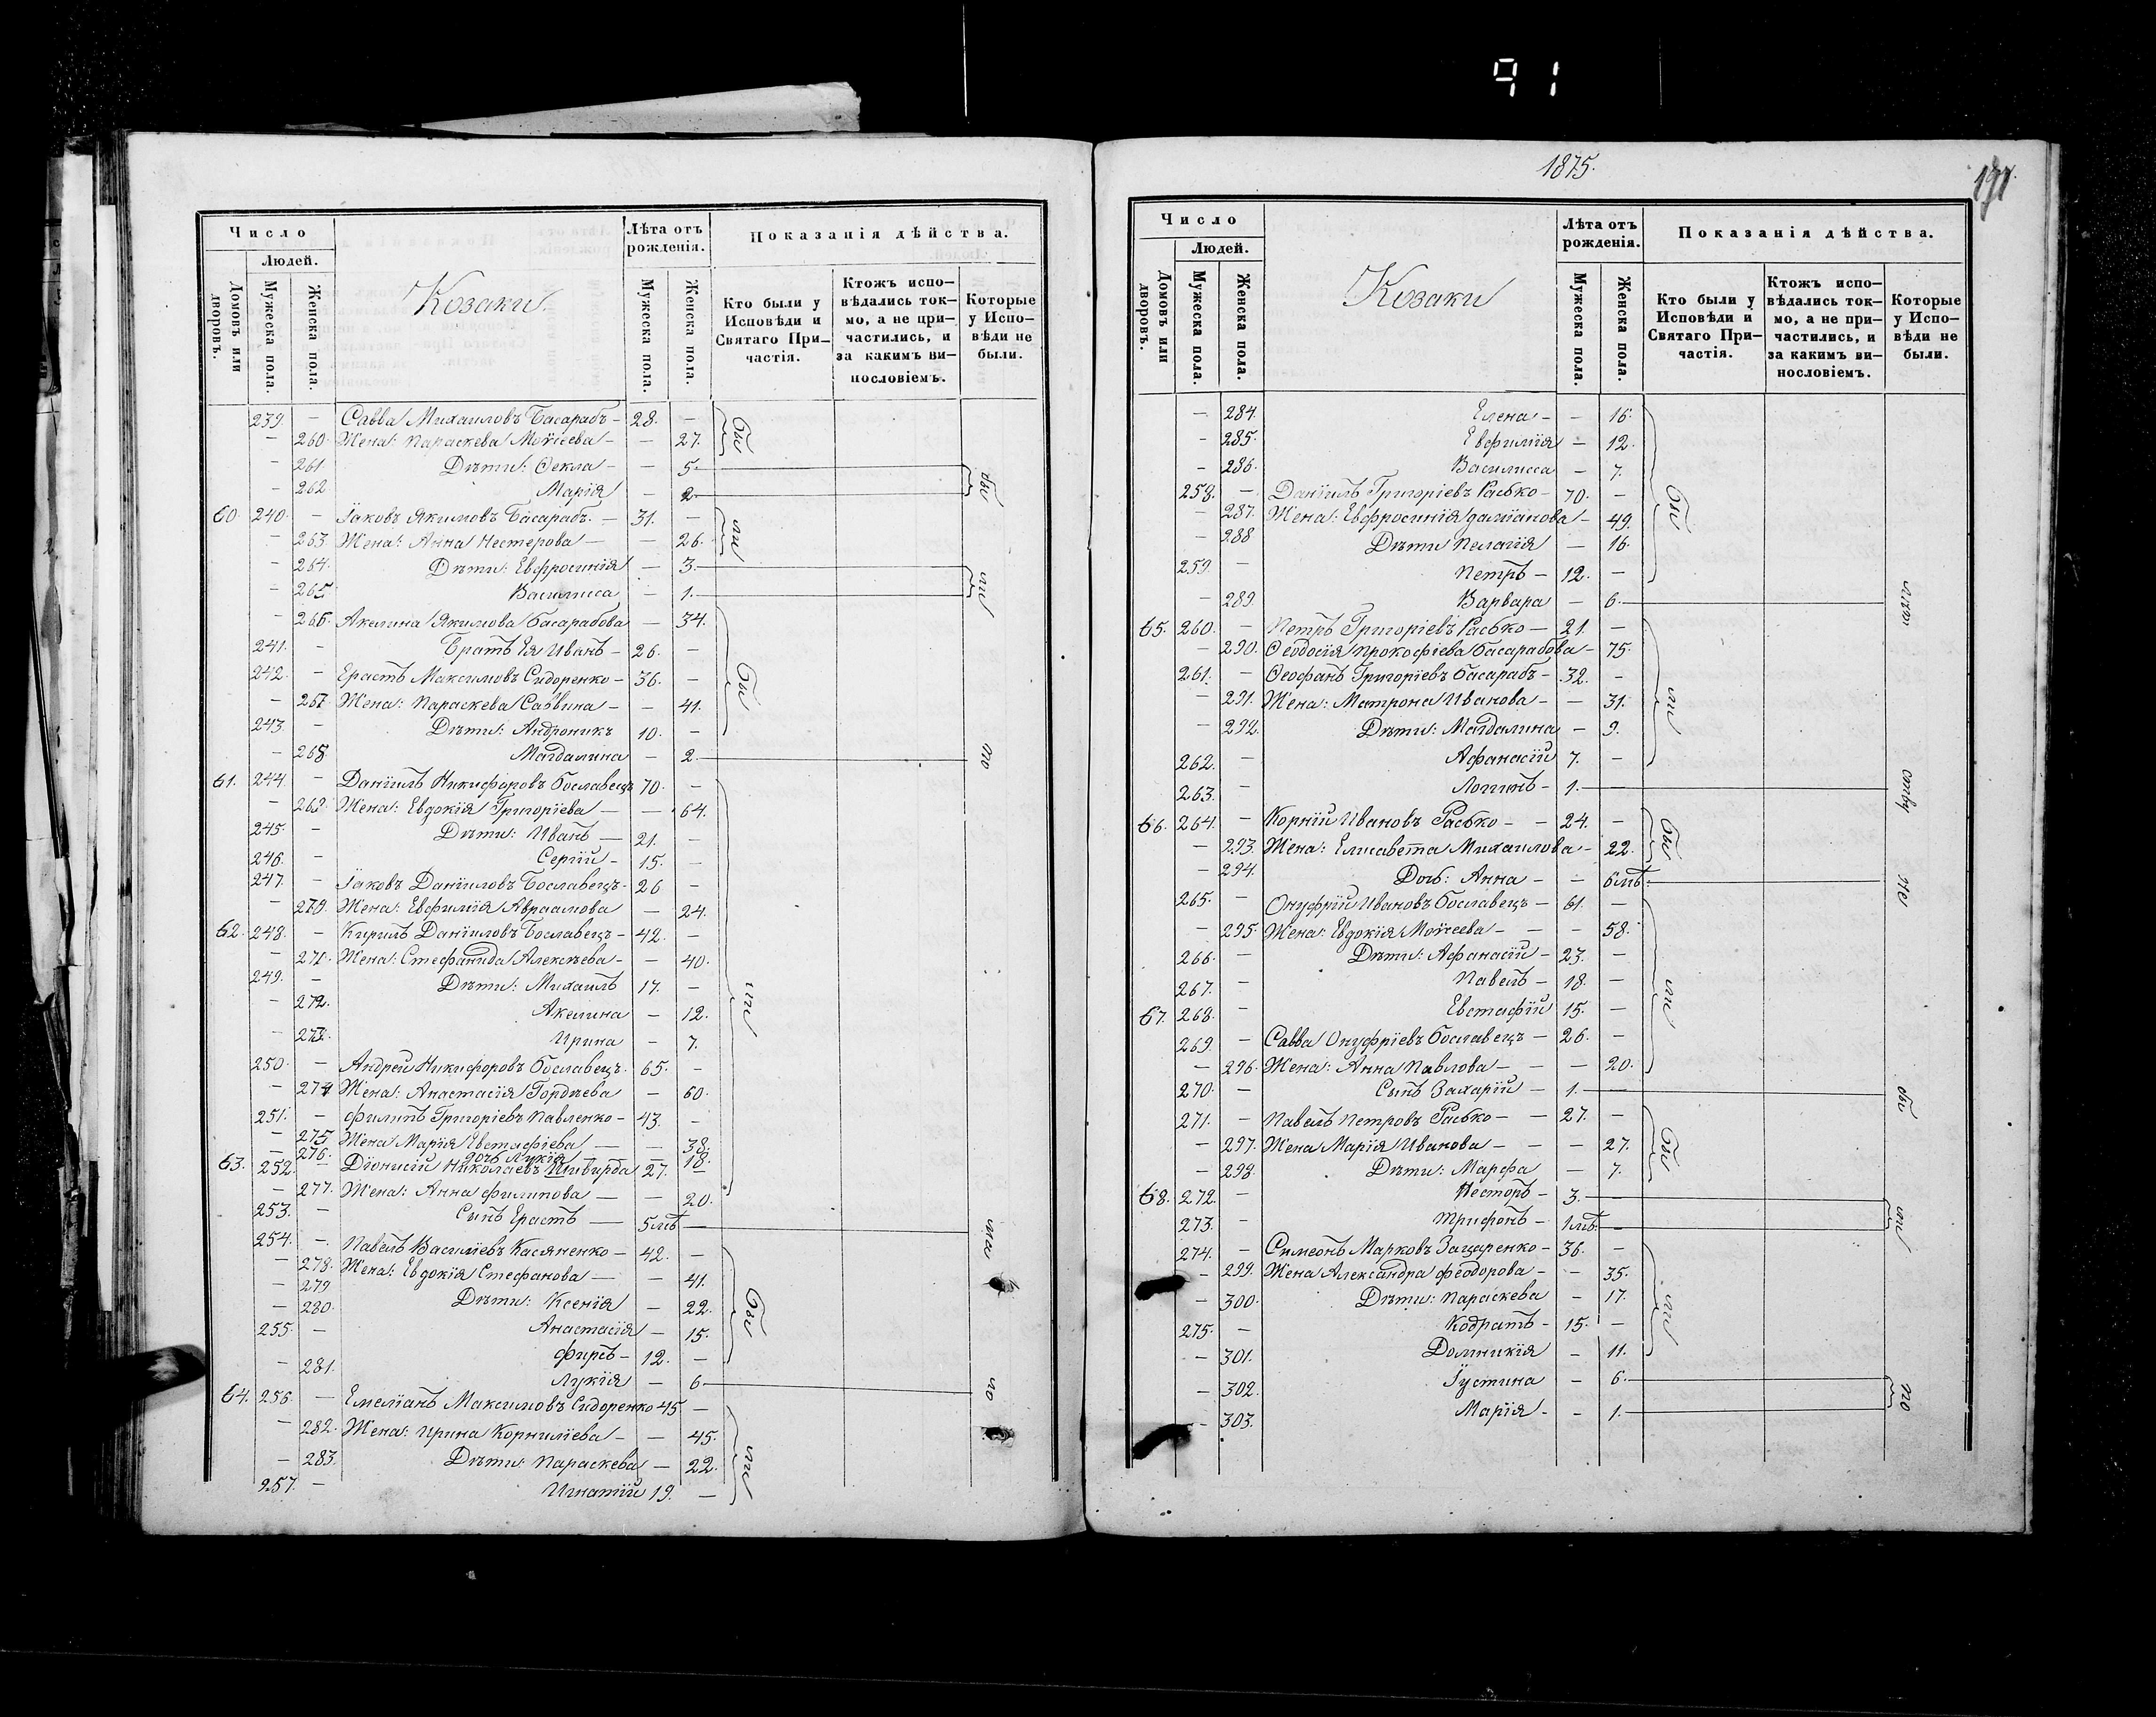 91
Число
Людей.
Домовъ или дворовъ.
Мужеска пола.
Женска пола.
Козаки.
Лѣта отъ рожденія.
Мужеска пола.
Женска пола.
Показанія дѣйства.
Кто были у Исповѣди и Святаго Причастія.
Ктожъ исповѣдались токмо, а не причастились, и за какимъ винословіемъ.
Которые у Исповѣди не были.
239. – Савва Михаиловъ Басарабъ – 28. –
– 260. Жена: Параскева Моѵсеева – – 27.
– 261. Дѣти: Ѳекла – – 5.
– 262 Марія – 2.
60. 240. – Іаковъ Якимовъ Басарабъ. – 31. –
– 263 Жена: Анна Нестерова – – 26.
– 264. Дѣти: Евфросинія – 3.
– 265 Василиса – 1.
– 266. Акилина Якимова Басарабова – 34.
241. – Братъ Ея Иванъ – 26. –
242. – Ерастъ Максимовъ Сидоренко – 36. –
– 267 Жена: Параскева Саввина – – 41.
243. – Дѣти: Андроникъ 10. –
– 268. Магдалина – 2.
61. 244. – Даніилъ Никифоровъ Бославецъ 70. –
– 269. Жена: Евдокія Григоріева – – 64.
245. – Дѣти: Иванъ – 21. –
246. – Сергій – 15. –
247. – Іаковъ Даніиловъ Бославецъ. 26 –
– 270. Жена: Евфимія Авраамова – 24.
62. 248. – Кирилъ Даніиловъ Бославецъ – 42. –
– 271. Жена: Стефанида Алексѣева – – 40.
249. – Дѣти: Михаилъ 17. –
– 272. Акилина – 12.
– 273. Ирина – 7.
250. – Андрей Никифоровъ Бославецъ. 65. –
– 274 Жена: Анастасія Гордѣева – 60.
251. – Филипъ Григоріевъ Павленко – 43. –
– 275 Жена Марія Евстафіева – – 38.
– 276. дочь Лукія – 18.
63. 252. – Діонисій Николаевъ Шивирда 27. –
– 277. Жена: Анна Филипова – – 20.
253. – Сынъ Ерастъ – 5 мѣ –
254. – Павелъ Василіевъ Касяненко – 42. –
– 278. Жена: Евдокія Стефанова – – 41.
– 279
– 280. Дѣти: Ксенія – 22.
255. – Анастасія – 15.
Фирсъ – 12. –
– 281. Лукія – 6.
64. 256. – Емеліанъ Максимовъ Сидоренко 45 –
– 282. Жена: Ирина Корниліева – – 45.
– 283. Дѣти: Параскева – 22.
257. – Игнатій 19. –
1875.
Число
Людей.
Домовъ или дворовъ.
Мужеска пола.
Женска пола.
Козаки
Лѣта отъ рожденія.
Мужеска пола.
Женска пола.
Показанія дѣйства.
Кто были у Исповѣди и Святаго Причастія.
Ктожъ исповѣдались токмо, а не причастились, и за какимъ винословіемъ.
Которые у Исповѣди не были.
– 284. Елена – – 16.
– 285. Евфимія – 12.
– 286. Василисса – 7.
258. – Даніилъ Григоріевъ Расько – 70. –
– 287. Жена: Евфросинія Даміанова – 49.
– 288 Дѣти Пелагія – 16.
259. – Петръ – 12. –
– 289. Варвара – 6.
65. 260. – Петръ Григоріевъ Расько – 21. –
– 290. Ѳеодосія Прокофіева Басарабова – 75.
261. – Ѳеофанъ Григоріевъ Басарабъ – 32. –
– 291. Жена: Матрона Иванова – – 31.
– 292. Дѣти: Магдалина – 9.
262. – Афанасій 7. –
263. – Логинъ – 1. –
66. 264. – Корній Ивановъ Расько – – 24. –
– 293. Жена: Елисавета Михаилова – 22.
– 294. Дочь: Анна – – 6 мѣ.
265. – Онуфрій Ивановъ Бославецъ – 61. –
– 295. Жена: Евдокія Моѵсеева – – 58.
266. – Дѣти: Афанасій – 23. –
267. – Павелъ – 18. –
67. 268. – Евстафій 15. –
269. – Савва Онуфріевъ Бославецъ – 26. –
– 296. Жена: Анна Павлова – – – 20.
270. – Сынъ Захарій – 1. –
271. – Павелъ Петровъ Расько – – 27. –
– 297. Жена Марія Иванова – – – 27.
– 298. Дѣти: Марфа – 7.
68. 272. – Несторъ – 3. –
273. – Трифонъ – 1 мѣ. –
274. – Симеонъ Марковъ Зацаренко – 36. –
– 299. Жена Александра Феодорова – – 35.
– 300. Дѣти: Параскева – 17.
275. – Кодратъ – 15. –
– 301. Домникія – 11.
– 302. Іустина – 6.
– 303. Марія – – 1.